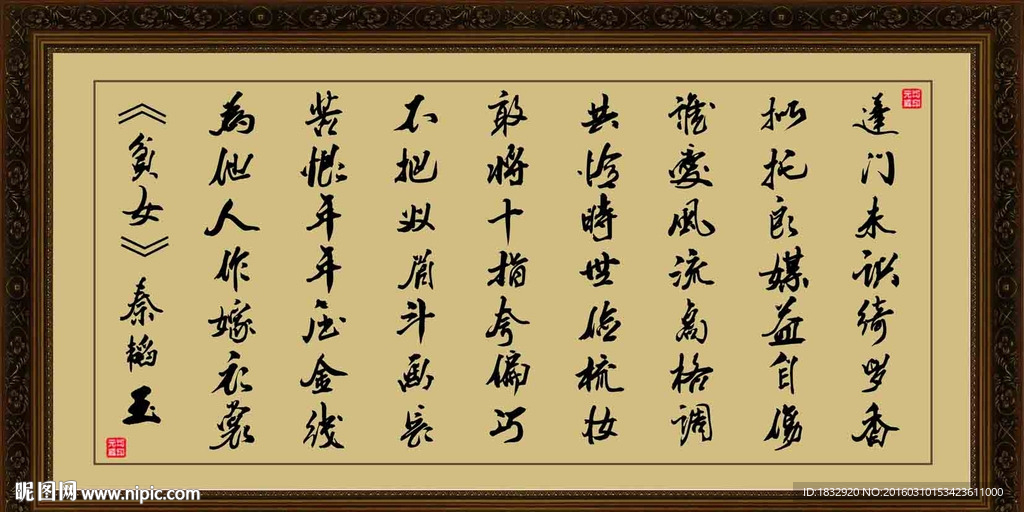 蓬门未识绮罗香
拟托良媒益自傷
谁愛風流高格調
共怜時世俭梳妆
敢将十指夸偏巧
不把双眉斗画長
苦恨年年压金线
為他人作嫁衣裳
《貧女》秦韬玉
昵图网 www.nipic.com
ID:1832920 NO:20160310153423611000